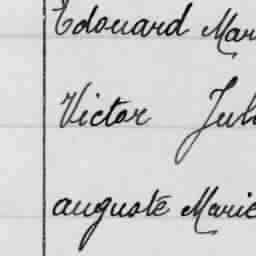 Edouard Mar
Victor Jul
auguste Marie